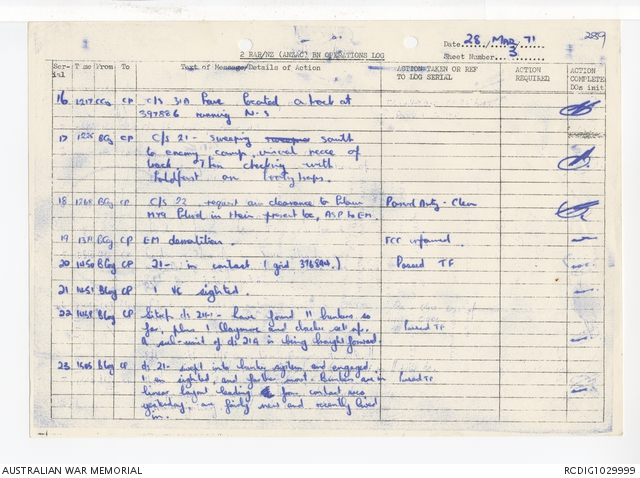 Date 28 Mar 71
2 RAR/NZ (ANZAC) BN OPERATIONS LOG
Sheet Number 3
Serial Time From To Text of Message/Details of Action ACTION TAKEN OR REF TO LOG SERIAL ACTION REQUIRED ACTION COMPLETE DOs init
16 1217 CP C/S 31A have located a track at
397886 running N-S
17 CP C/S 21 - sweeping south
to enemy camp, visual recce of
track then checking with
holdfast on booby traps.
18 CP C/S 22 request air clearance to blow
M79 blind in their present loc, ASP to EM. Passed Arty - Clear
19 CP EM demolition. FCC informed.
20 1450 BCoy CP 21- in contact (grid ) Passed TF
21 1451 BCoy CP 1 VC sighted.
22 BCoy CP Sitrep c/s 21 - have found 11 bunkers so
far, plus 1 Claymore and set up. Passed TF
A sub-unit of c/s 21A is being brought forward.
23 1505 BCoy CP c/s 21 - swept into bunker system and engaged.
1 en sighted, and further most bunkers are in Passed TF
linear layout leading from contact area
yesterday, are fairly new and recently lived
in.
AUSTRALIAN WAR MEMORIAL
RCDIG1029999